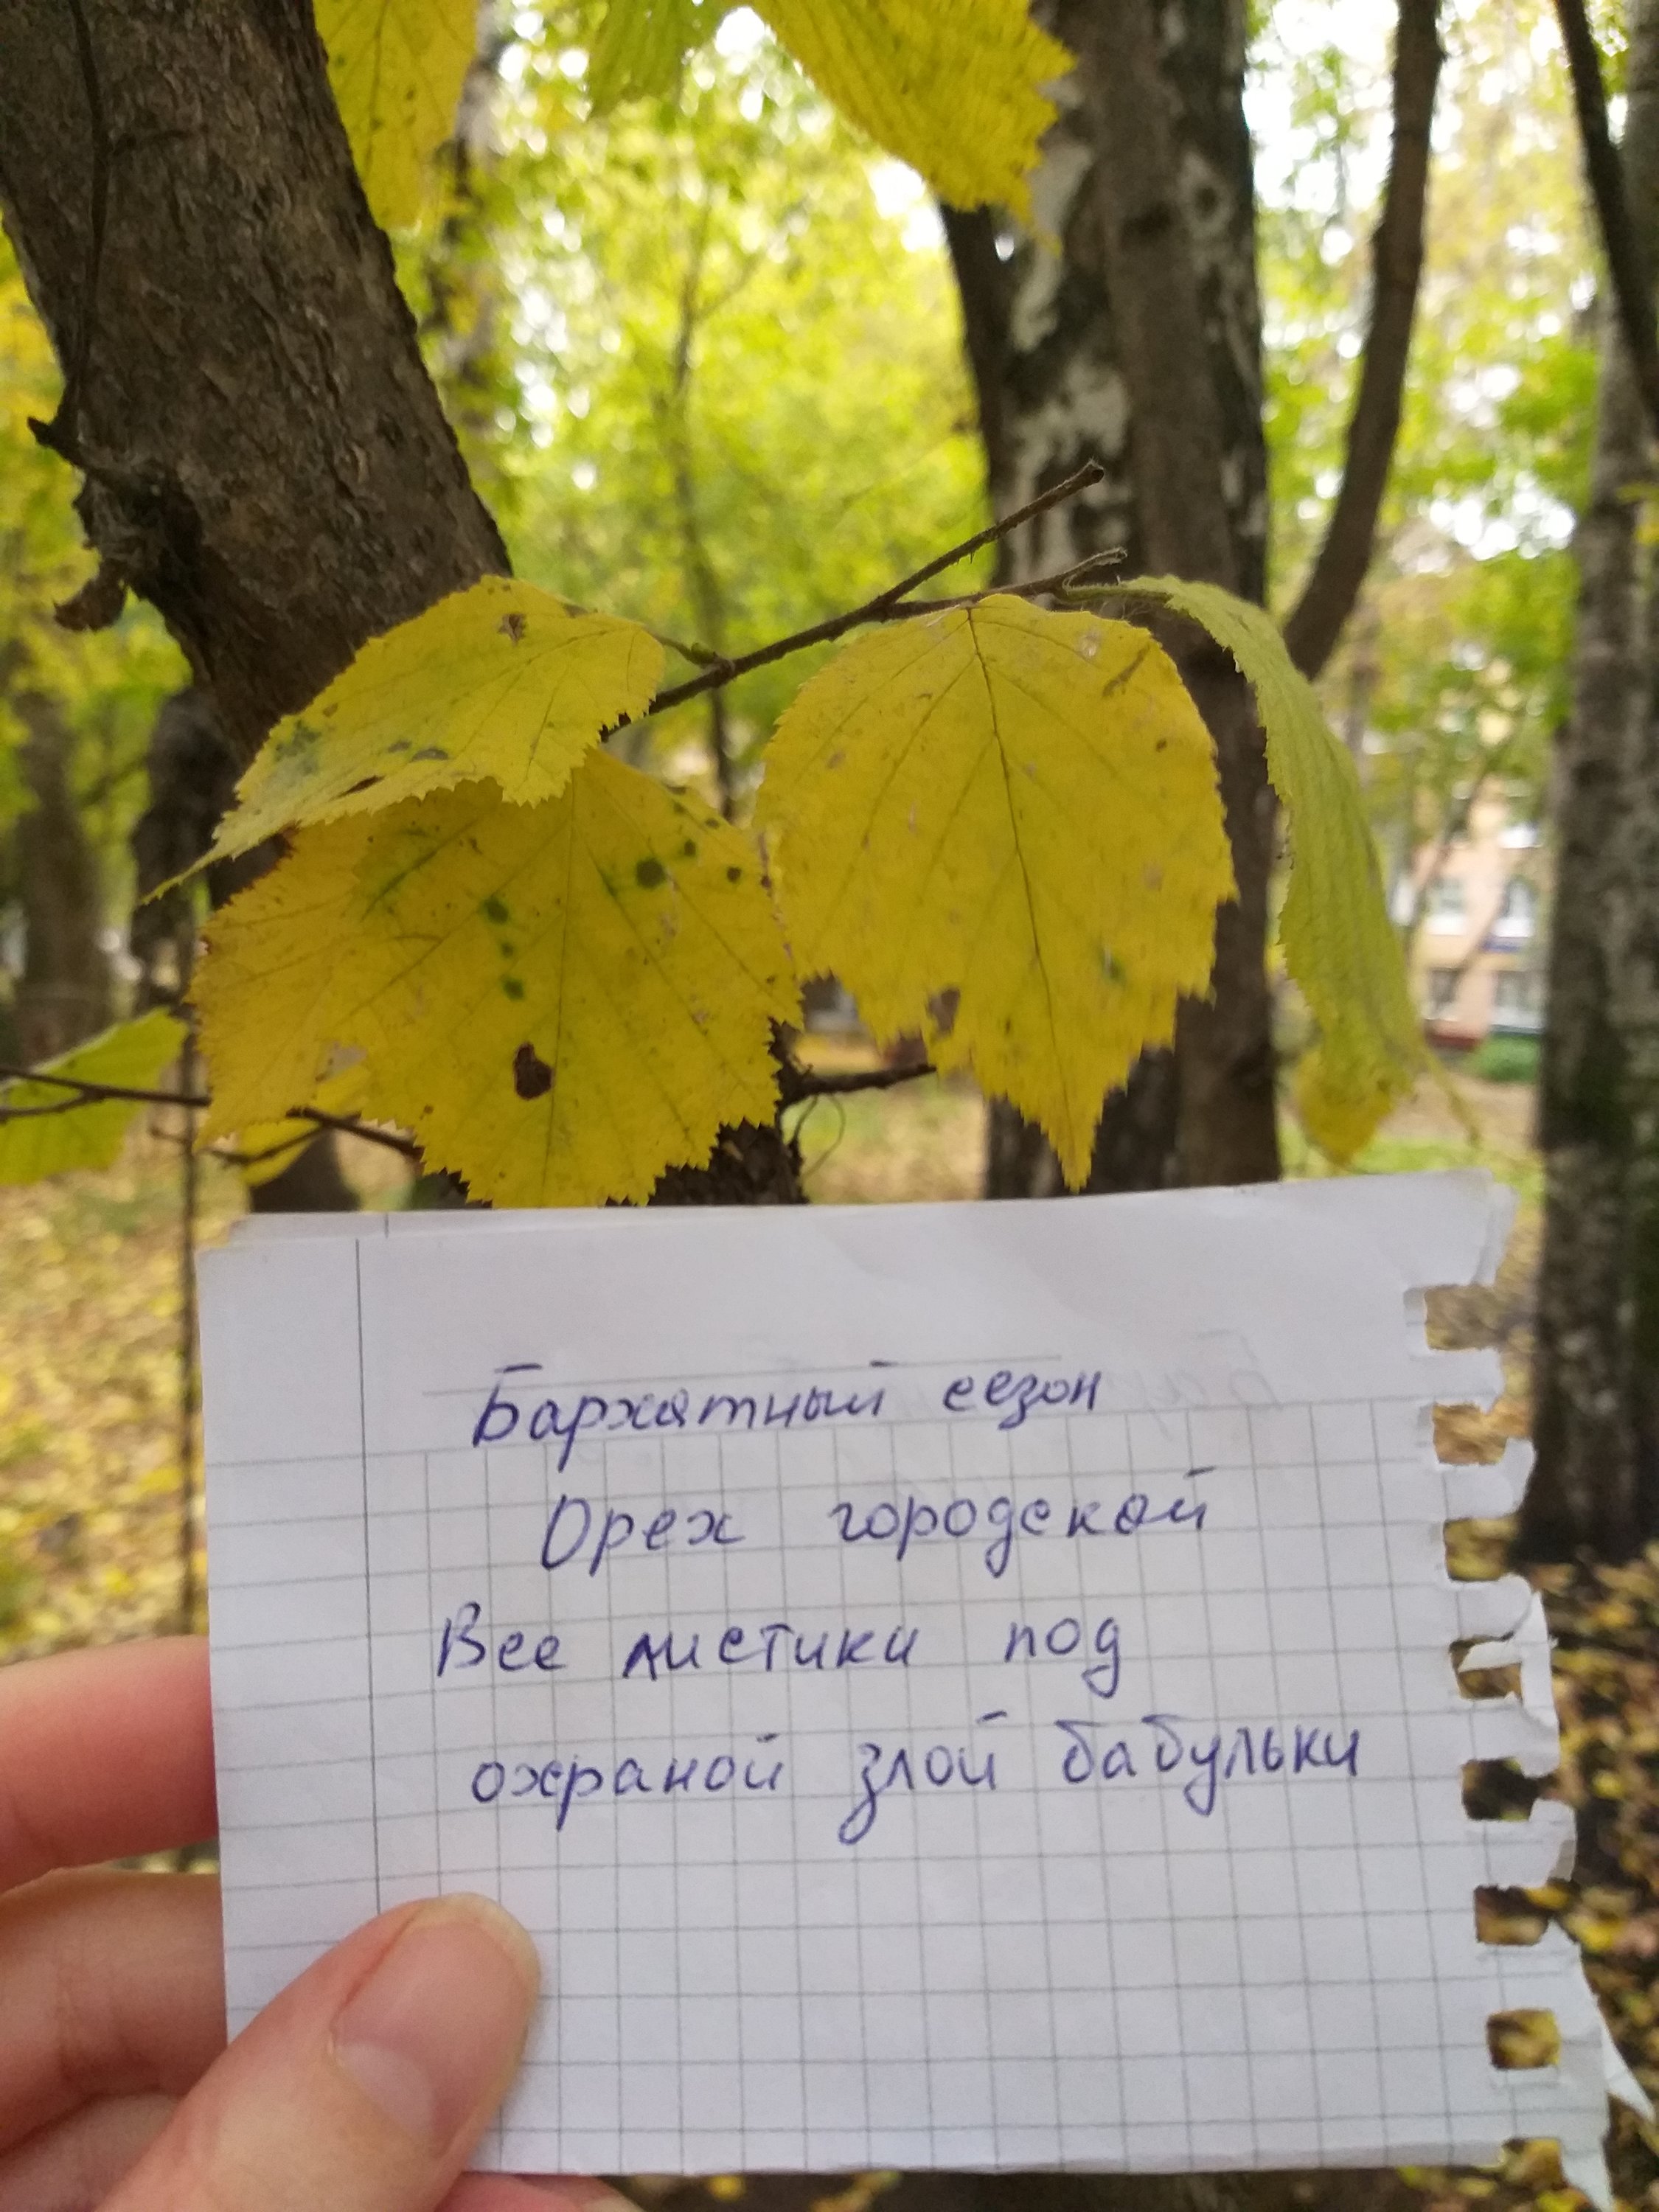 Бархатный сезон
Орех городской
Все листики под
охраной злой бабульки